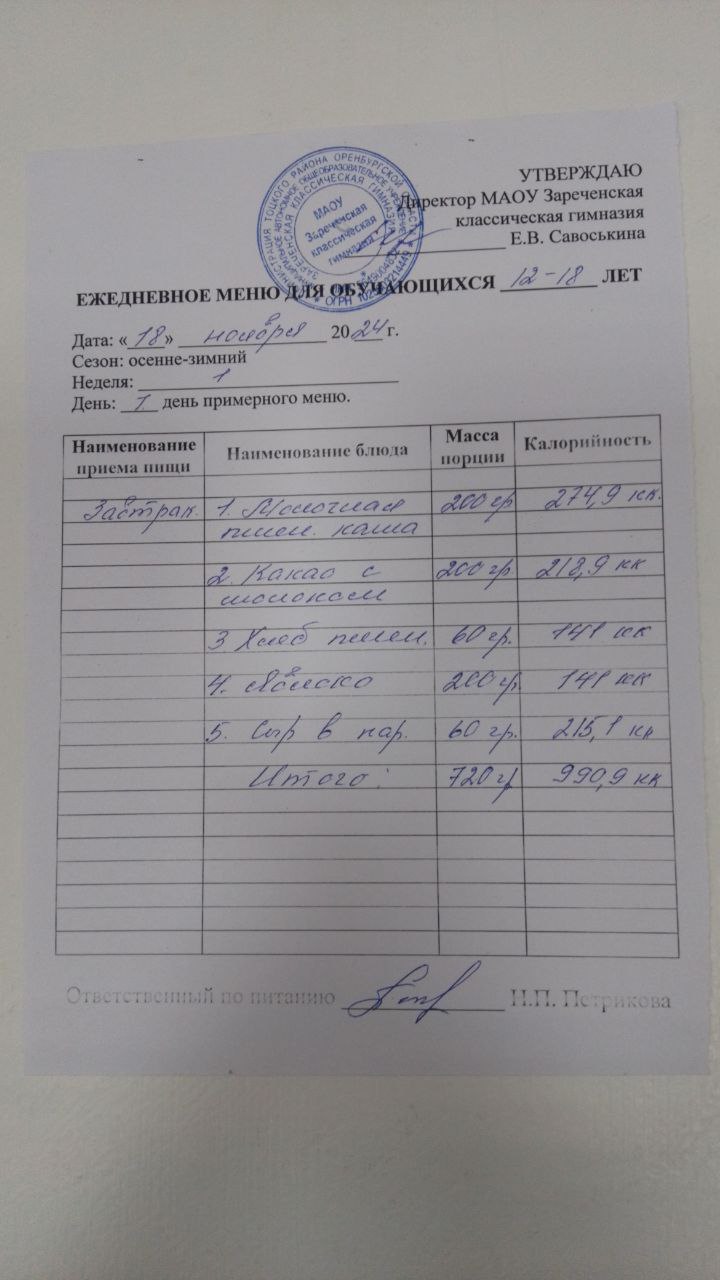 УТВЕРЖДАЮ
Директор МАОУ Зареченская
классическая гимназия
Е.В. Савоськина
МАОУ
Зареченская
классическая
гимназия
ЕЖЕДНЕВНОЕ МЕНЮ ДЛЯ ОБУЧАЮЩИХСЯ 12-18 ЛЕТ
Дата: «18» ноября 2024 г.
Сезон: осенне-зимний
Неделя: 1
День: 1 день примерного меню.
Наименование приема пищи Наименование блюда Масса порции Калорийность
Завтрак. 1. Молочная 200 гр 274,9 кк.
пшен. каша
2. Какао с 200 гр. 218,9 кк
молоком
3 Хлеб пшен. 60 гр. 141 кк
4. Яблоко 200 гр. 141 кк
5. Сыр в пар. 60 гр. 215,1 кк
Итого: 720 гр 990,9 кк
Ответственный по питанию Н.П. Петрикова